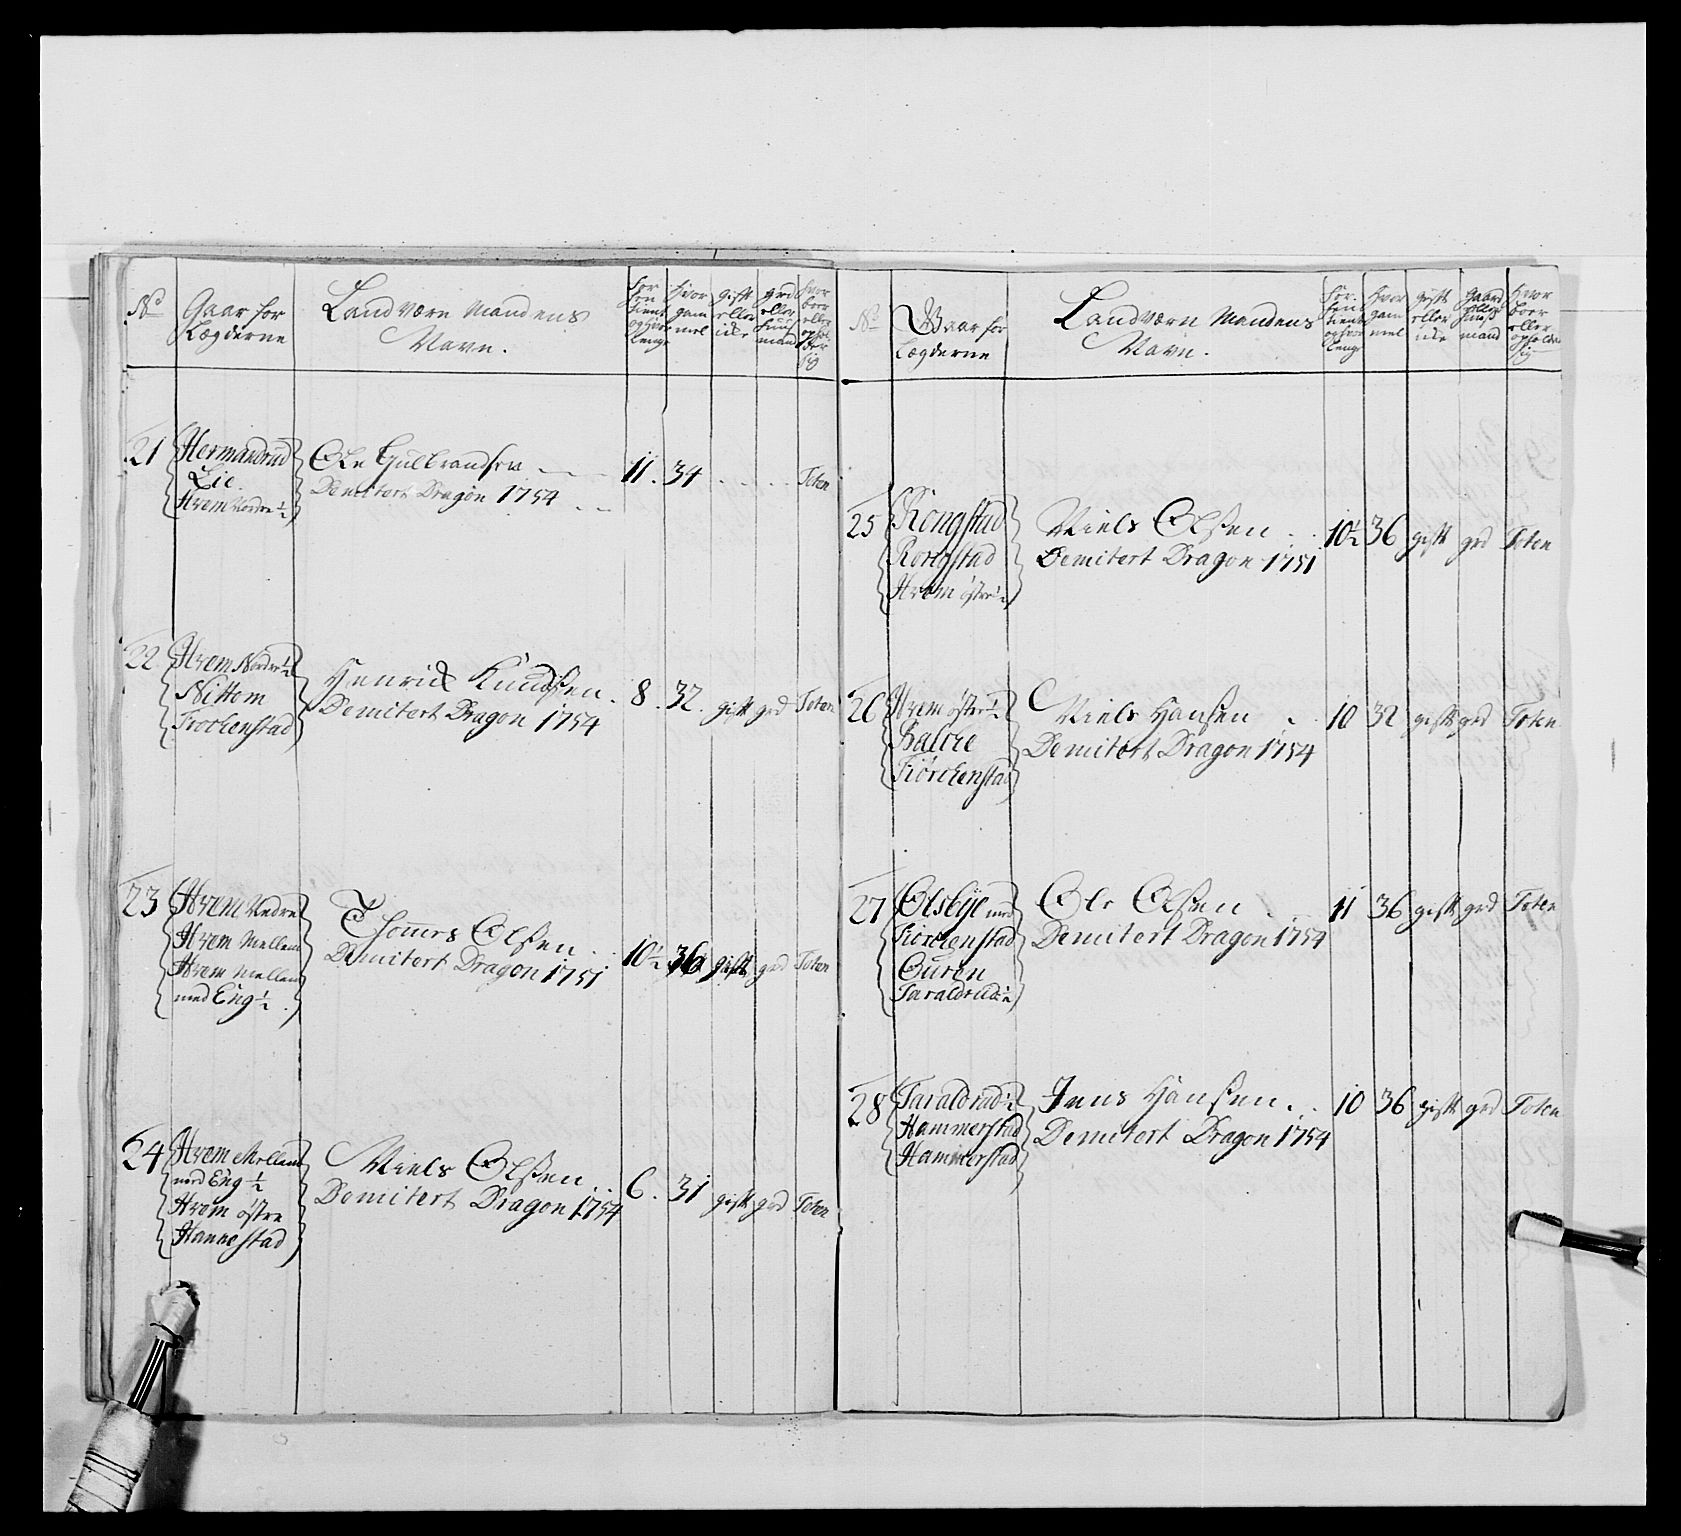 No
Gaar for
Lægderne
Landværn Mandens
Navn.
Hvor
gam
mel
gift
eller
icke
grd
eller
huus
mand
Hvor
boer
eller
21
Hermandrud
Lie.
Hrem Nordre ½
Ole Gulbrandsen
Demitert Dragon 1754
11. 34 Toten
22
Hrem Nordre ½
Nettom
Krockenstad
Henrick Knudsen.
Demitert Dragon 1754
8. 32. gift grd Toten
23
Hrem Nedre
Hrem Mellem
Hrem Mellem
med Eng ½.
Thomes Olsen
Demitert Dragon 1751
10½ 36 gift grd Toten
24
Hrem Mellem
med Eng ½
Hrem østre
Hannestad
Niels Olsen..
Demitert Dragon 1754
6. 31 gift grd Toten
No
Gaar for
Lægderne
Landværn Mandens
Navn.
Hvor
gam
mel
gift
eller
icke
Gaard
eller
huuß
mand
Hvor
boer
eller
opholder
sig
25
Rongstad
Rongstad
Hrem østre ½
Niels Olsen
Demitert Dragon 1751
10½ 36 gift grd Toten
26
Hrem østre ½
Balcke
Kiørckenstad
Niels Hansen
Demitert Dragon 1754
10 32 gift grd Toten
27
Olsbye med
Kiorckenstad
Ouren
Taraldrud ½
Ole Olsen
Demitert Dragon 1754
11 36 gift grd Toten
28
Taraldrud ½
Hammerstad
Hammerstad
Jens Hansen..
Demitert Dragon 1754
10 36 gift grd Toten